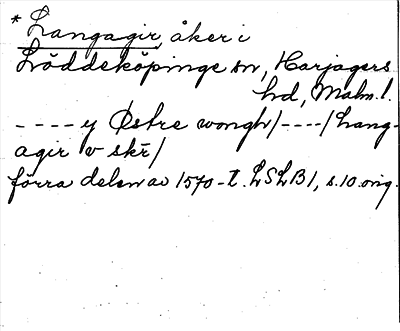 * Langagir, åker i
Löddeköpinge sn, Harjagers
hd, Malm. l.
- - - - y Østre wongh/- - - -/Lang-
agir v skr/
förra delen av 1570-t. LSLB1, s. 10 orig.